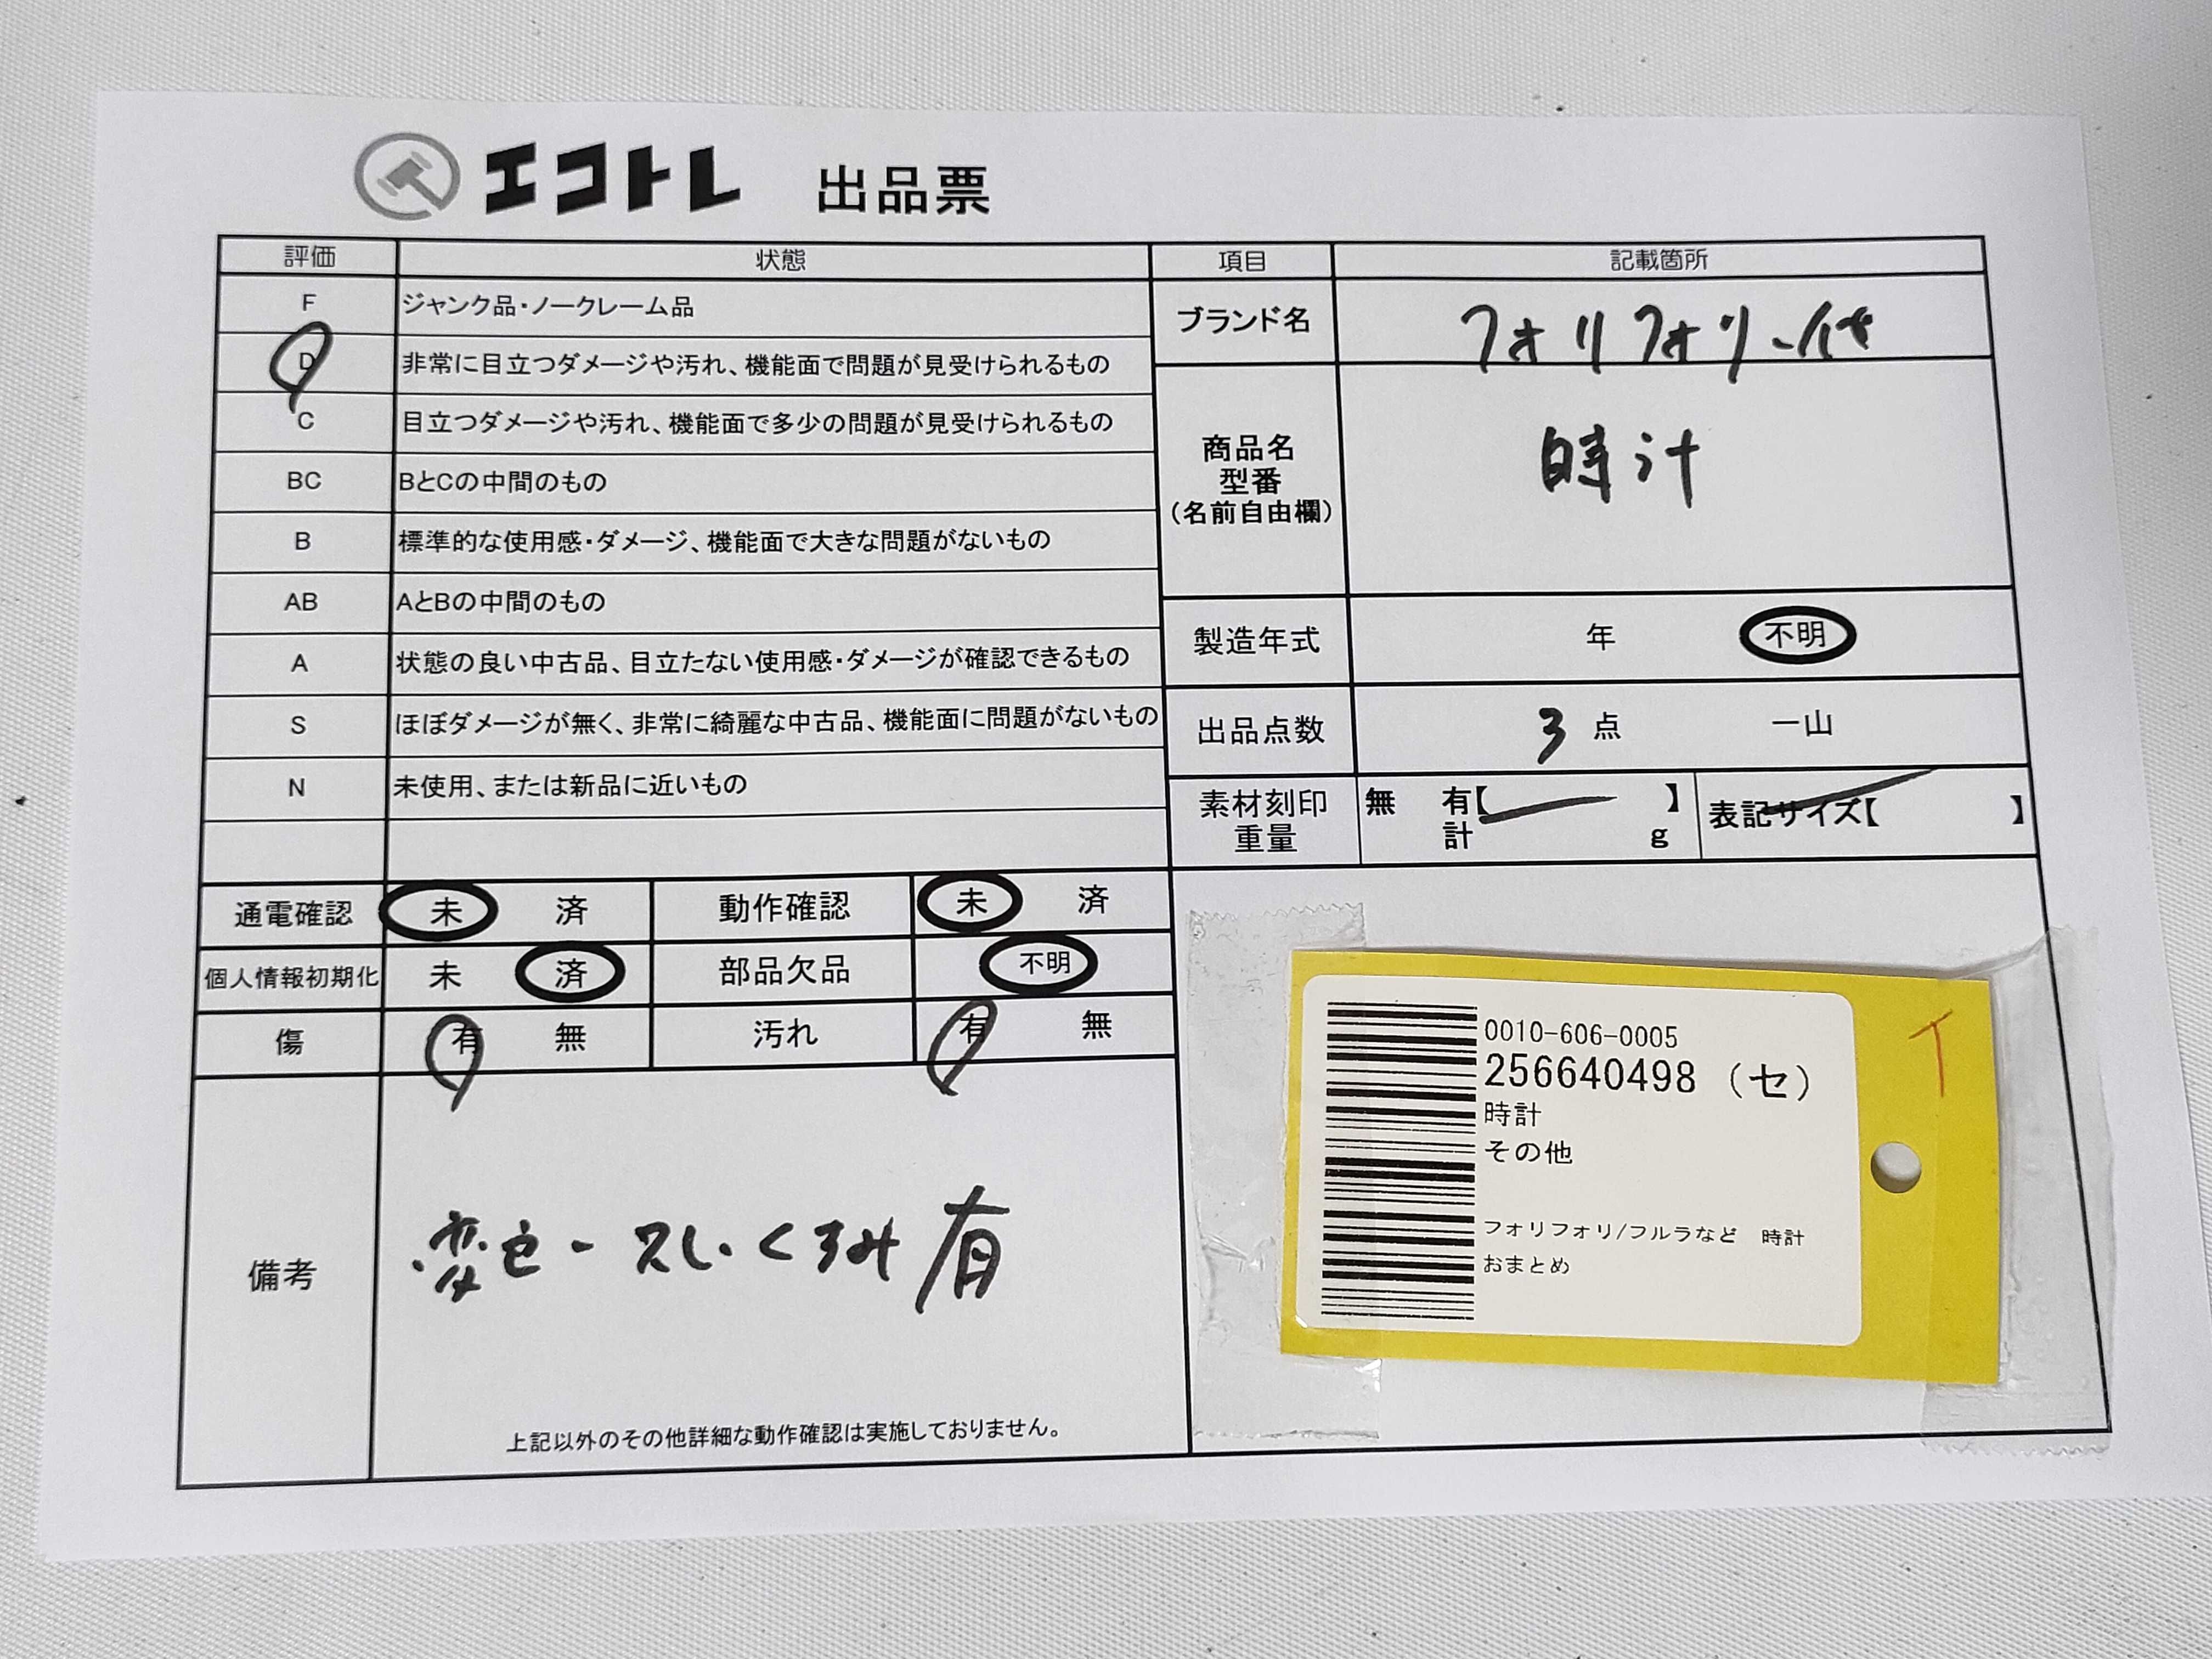 エコトレ 出品票
評価 状態 項目 記載箇所
F ジャンク品・ノークレーム品
D 非常に目立つダメージや汚れ、機能面で問題が見受けられるもの
C 目立つダメージや汚れ、機能面で多少の問題が見受けられるもの
BC BとCの中間のもの
B 標準的な使用感・ダメージ、機能面で大きな問題がないもの
AB AとBの中間のもの
A 状態の良い中古品、目立たない使用感・ダメージが確認できるもの
S ほぼダメージが無く、非常に綺麗な中古品、機能面に問題がないもの
N 未使用、または新品に近いもの
ブランド名 フォリフォリ・他
商品名
型番
(名前自由欄)
時計
製造年式 年 不明
出品点数 3 点 一山
素材刻印
重量
無 有【 】
計 g
表記サイズ【 】
通電確認 未 済 動作確認 未 済
個人情報初期化 未 済 部品欠品 不明
傷 有 無 汚れ 有 無
備考
変色・スレ・くすみ有
上記以外のその他詳細な動作確認は実施しておりません。
0010-606-0005
256640498 (セ)
時計
その他
フォリフォリ/フルラなど 時計
おまとめ